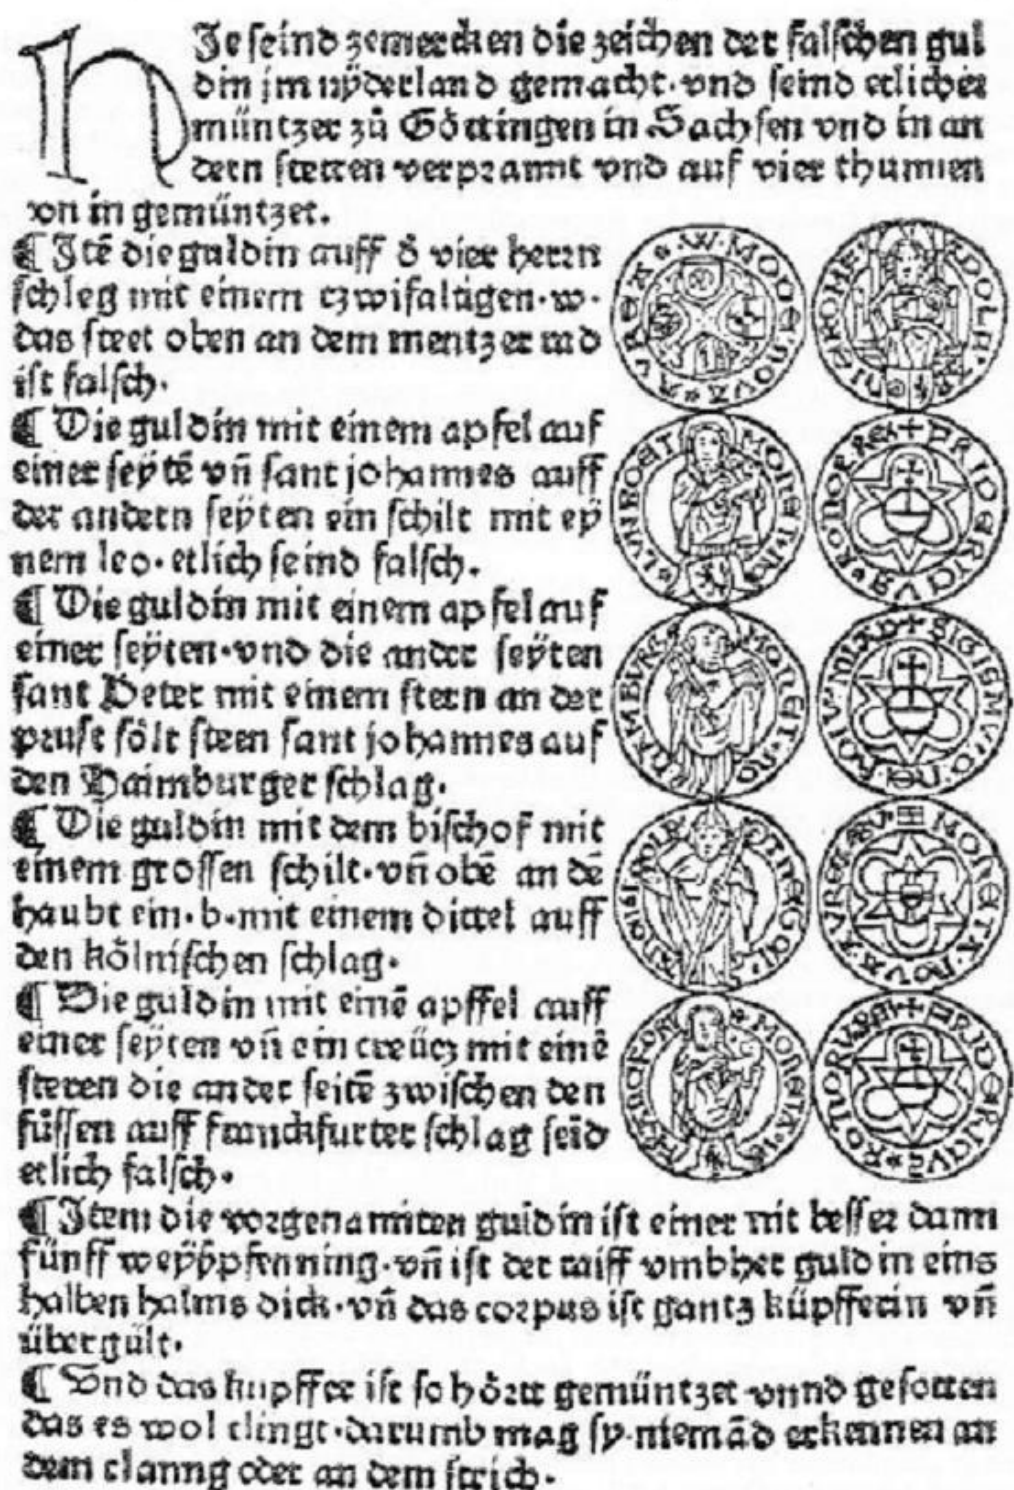 HJe seind zemercken die zeichen der falschen gul
din jm nÿderland gemacht· vnd seind etlicher
müntzer zů Göttingen in Sachsen vnd in an
dern stetten verprannt vnd auf vier thunnen
von in gemüntzet.
¶ Jtē die guldin auff d̄ vier herrn
schleg mit einem czwifaltigen·w·
das steet oben an dem mentzer rad
ist falsch·
¶ Die guldin mit einem apfel auf
einer seÿtē vn̄ sant johannes auff
der andern seÿten ein schilt mit eÿ
nem leo· etlich seind falsch.
¶ Die guldin mit einem apfel auf
einer seÿten· vnd die ander seÿten
sant Peter mit einem stern an der
prust sölt steen sant johannes auf
den Haimburger schlag·
¶ Die guldin mit dem bischof mit
einem grossen schilt· vn̄ obē an dē
haubt ein·b·mit einem dittel auff
den kölnischen schlag·
¶ Die guldin mit einē apffel auff
einer seÿten vn̄ ein creücz mit einē
steren die ander seitē zwischen den
füssen auff franckfurter schlag seīd
etlich falsch·
¶ Jtem die vorgenannten guldin ist einer nit besser dann
fünff weÿßpfenning· vn̄ ist der raiff vmbher guldin eins
halben halms dick· vn̄ das corpus ist gantz küpfferin vn̄
übergült·
¶ Vnd das kupffer ist so hörtt gemüntzet vnnd gesotten
das es wol clingt· darumb mag sy niemād erkennen an
dem clanng oder an dem strich·
W·MODE·NOVA·AUREA
MONETA NOVA AUREA